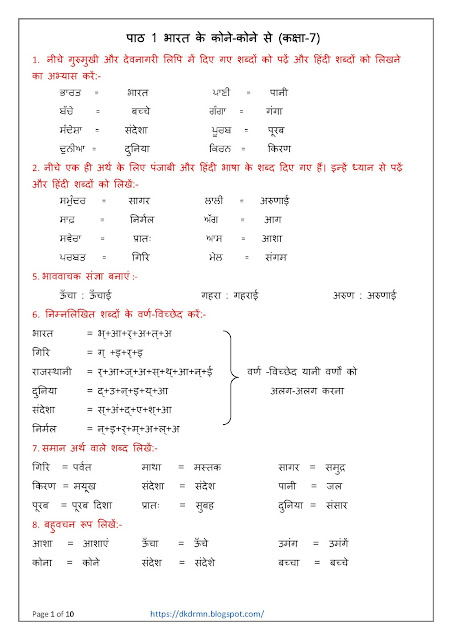 पाठ 1 भारत के कोने-कोने से (कक्षा-7)
1. नीचे गुरुमुखी और देवनागरी लिपि में दिए गए शब्दों को पढ़ें और हिंदी शब्दों को लिखने
का अभ्यास करें:-
ਭਾਰਤ = भारत ਪਾਣੀ = पानी
ਬੱਚੇ = बच्चे ਗੰਗਾ = गंगा
ਸੰਦੇਸ਼ਾ = संदेशा ਪੂਰਬ = पूरब
ਦੁਨੀਆ = दुनिया ਕਿਰਨ = किरण
2. नीचे एक ही अर्थ के लिए पंजाबी और हिंदी भाषा के शब्द दिए गए हैं। इन्हें ध्यान से पढ़ें
और हिंदी शब्दों को लिखें:-
ਸਮੁੰਦਰ = सागर ਲਾਲੀ = अरुणाई
ਸਾਫ਼ = निर्मल ਅੱਗ = आग
ਸਵੇਰਾ = प्रातः ਆਸ = आशा
ਪਰਬਤ = गिरि ਮੇਲ = संगम
5. भाववाचक संज्ञा बनाएं :-
ऊँचा : ऊँचाई गहरा : गहराई अरुण : अरुणाई
6. निम्नलिखित शब्दों के वर्ण-विच्छेद करें:-
भारत = भ्+आ+र्+अ+त्+अ
गिरि = ग् +इ+र्+इ
राजस्थानी = र्+आ+ज्+अ+स्+थ्+आ+न्+ई वर्ण -विच्छेद यानी वर्णों को
दुनिया = द्+उ+न्+इ+य्+आ अलग-अलग करना
संदेशा = स्+अं+द्+ए+श्+आ
निर्मल = न्+इ+र्+म्+अ+ल्+अ
7. समान अर्थ वाले शब्द लिखें:-
गिरि = पर्वत माथा = मस्तक सागर = समुद्र
किरण = मयूख संदेशा = संदेश पानी = जल
पूरब = पूरब दिशा प्रातः = सुबह दुनिया = संसार
8. बहुवचन रूप लिखें:-
आशा = आशाएं ऊँचा = ऊँचे उमंग = उमंगें
कोना = कोने संदेश = संदेशे बच्चा = बच्चे
Page 1 of 10 https://dkdrmn.blogspot.com/